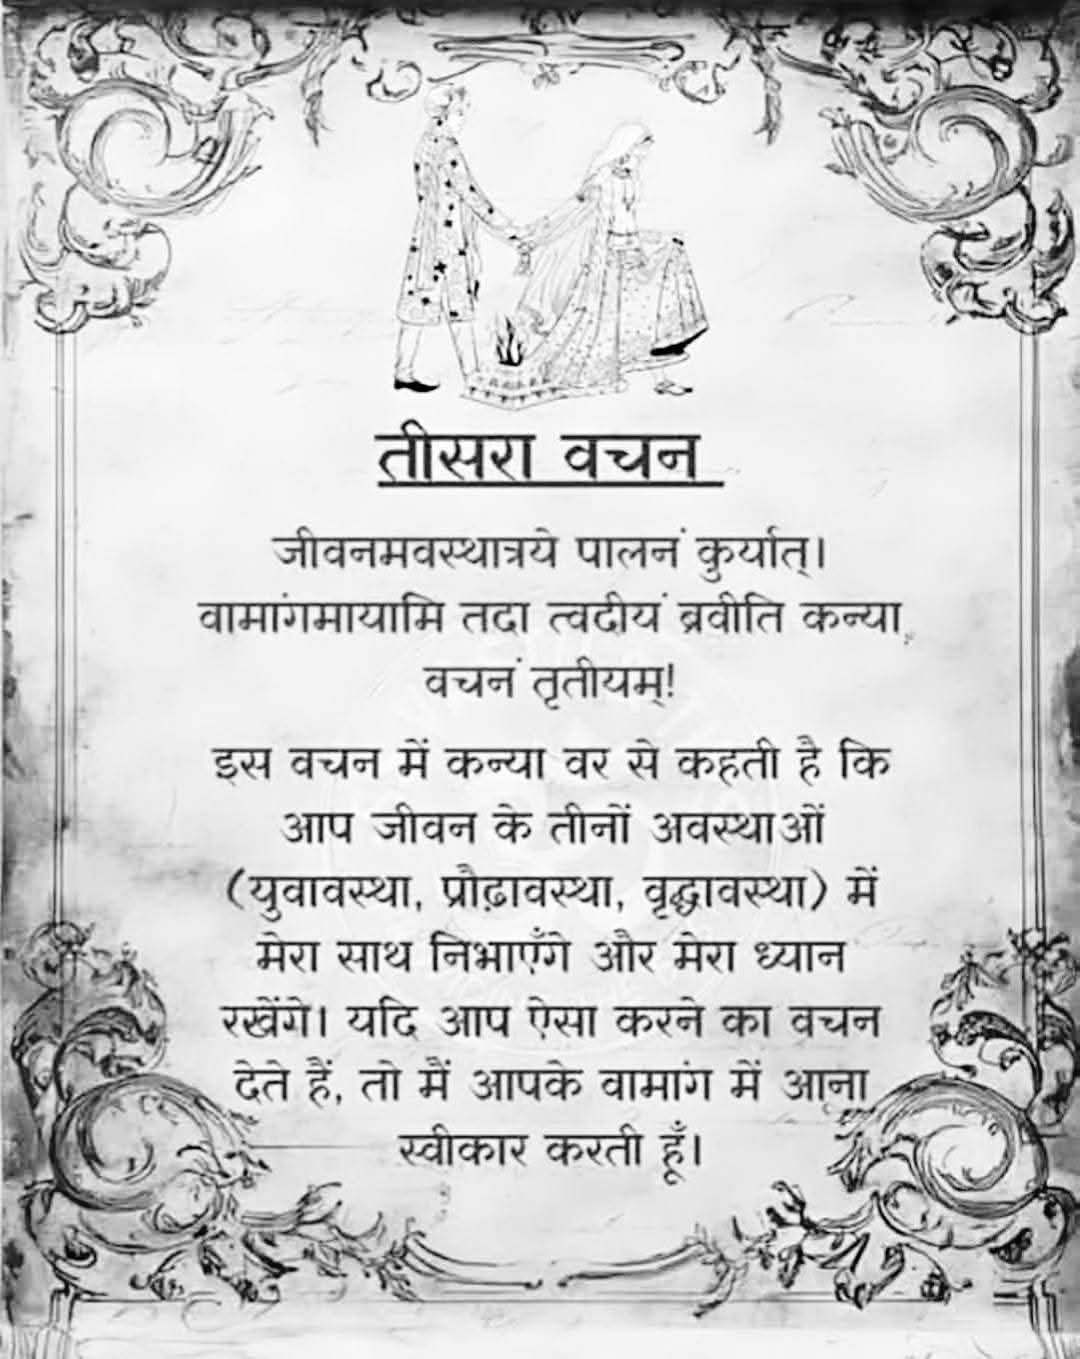 तीसरा वचन
जीवनमवस्थात्रये पालनं कुर्यात्।
वामांगमायामि तदा त्वदीयं ब्रवीति कन्या
वचनं तृतीयम्!
इस वचन में कन्या वर से कहती है कि
आप जीवन के तीनों अवस्थाओं
(युवावस्था, प्रौढ़ावस्था, वृद्धावस्था) में
मेरा साथ निभाएँगे और मेरा ध्यान
रखेंगे। यदि आप ऐसा करने का वचन
देते हैं, तो मैं आपके वामांग में आना
स्वीकार करती हूँ।